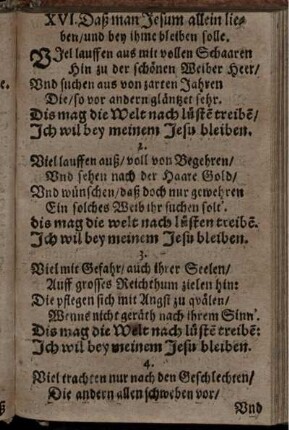 XVI. Daß man Jesum allein lie-
ben/und bey ihme bleiben solle.
VJel lauffen aus mit vollen Schaaren
Hin zu der schönen Weiber Heer/
Vnd suchen aus von zarten Jahren
Die/so vor andern gläntzet sehr.
Dis mag die Welt nach lüstē treibē/
Jch wil bey meinem Jesu bleiben.
2.
Viel lauffen auß/ voll von Begehren/
Vnd sehen nach der Haare Gold/
Vnd wünschen/daß doch nur gewehren
Ein solches Weib ihr suchen solt'.
dis mag die welt nach lüsten treibē.
Jch wil bey meinem Jesu bleiben.
3.
Viel mit Gefahr/auch ihrer Seelen/
Auff grosses Reichthum zielen hin:
Die pflegen sich mit Angst zu qvälen/
Wenns nicht geräth nach ihrem Sinn'.
Dis mag die Welt nach lüstē treibē:
Jch wil bey meinem Jesu bleiben.
4.
Viel trachten nur nach den Geschlechten/
Die andern allen schweben vor/
Vnd